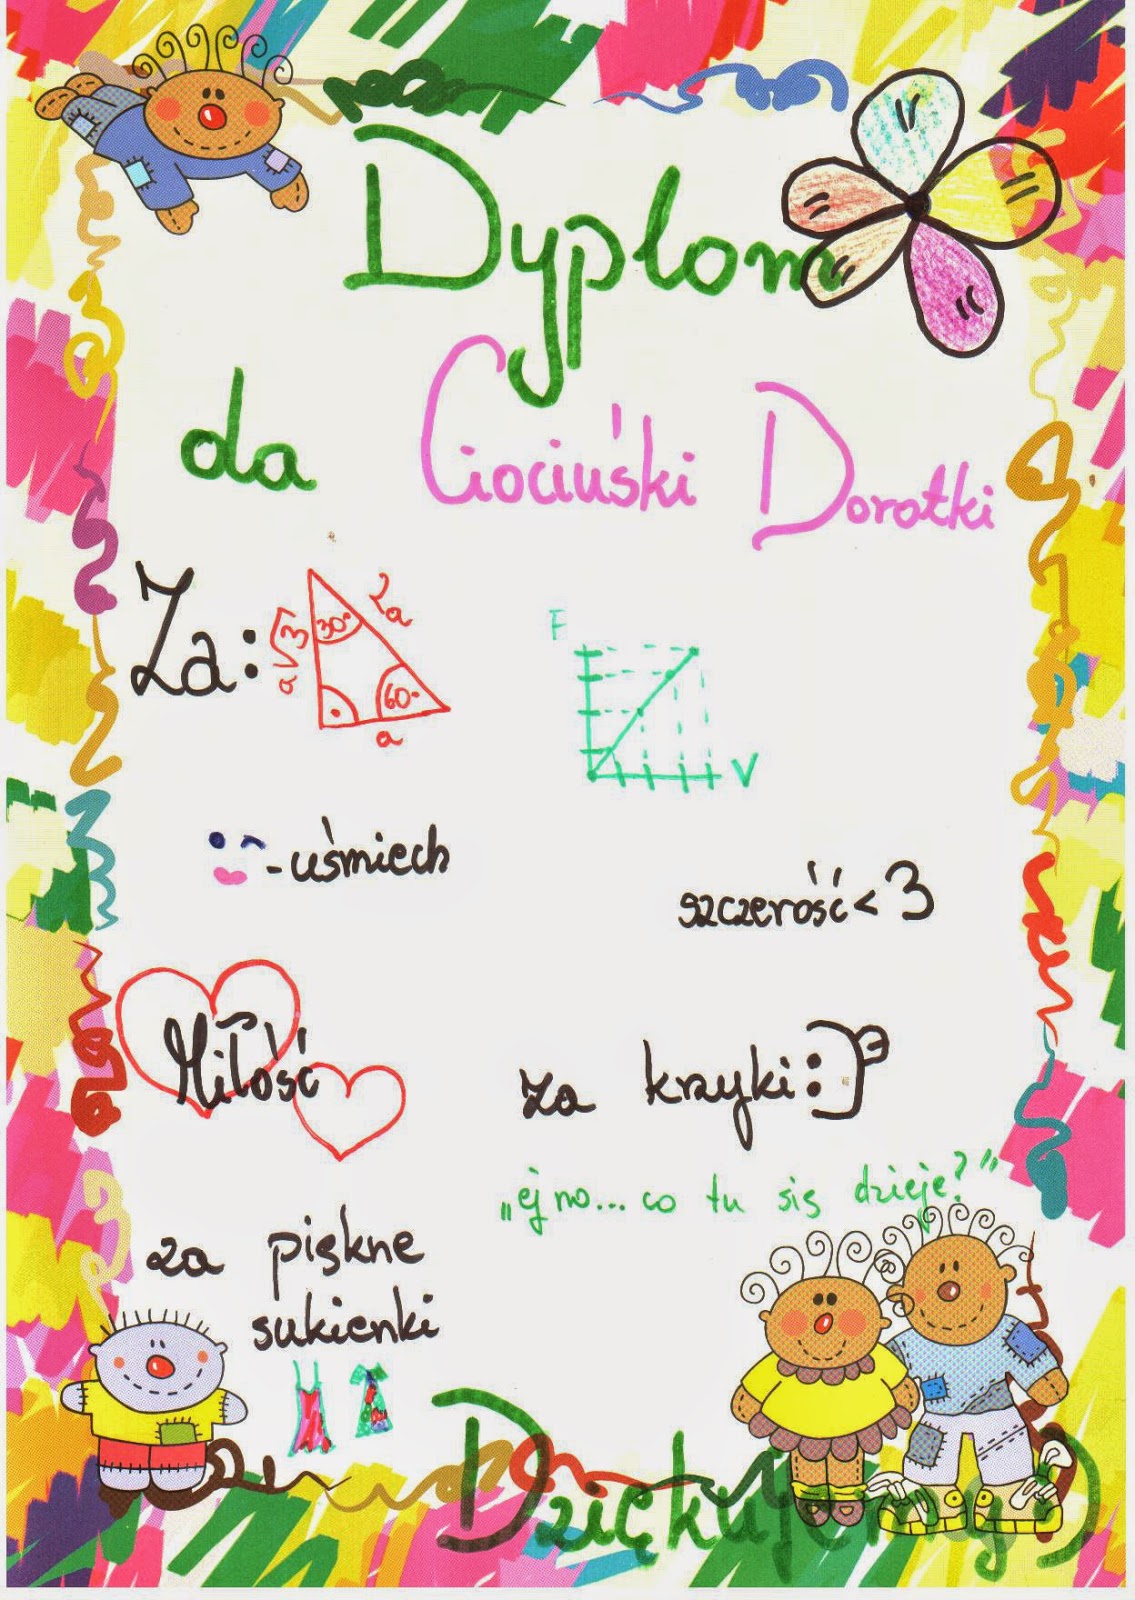 Dyplom
da Ciociuśki Dorotki
Za:
30°
2a
a√3
60°
a
F
V
- uśmiech
szczerość <3
Miłość
za krzyki :}3
„ej no... co tu się dzieje?”
za piękne
sukienki
Dziękujemy :)